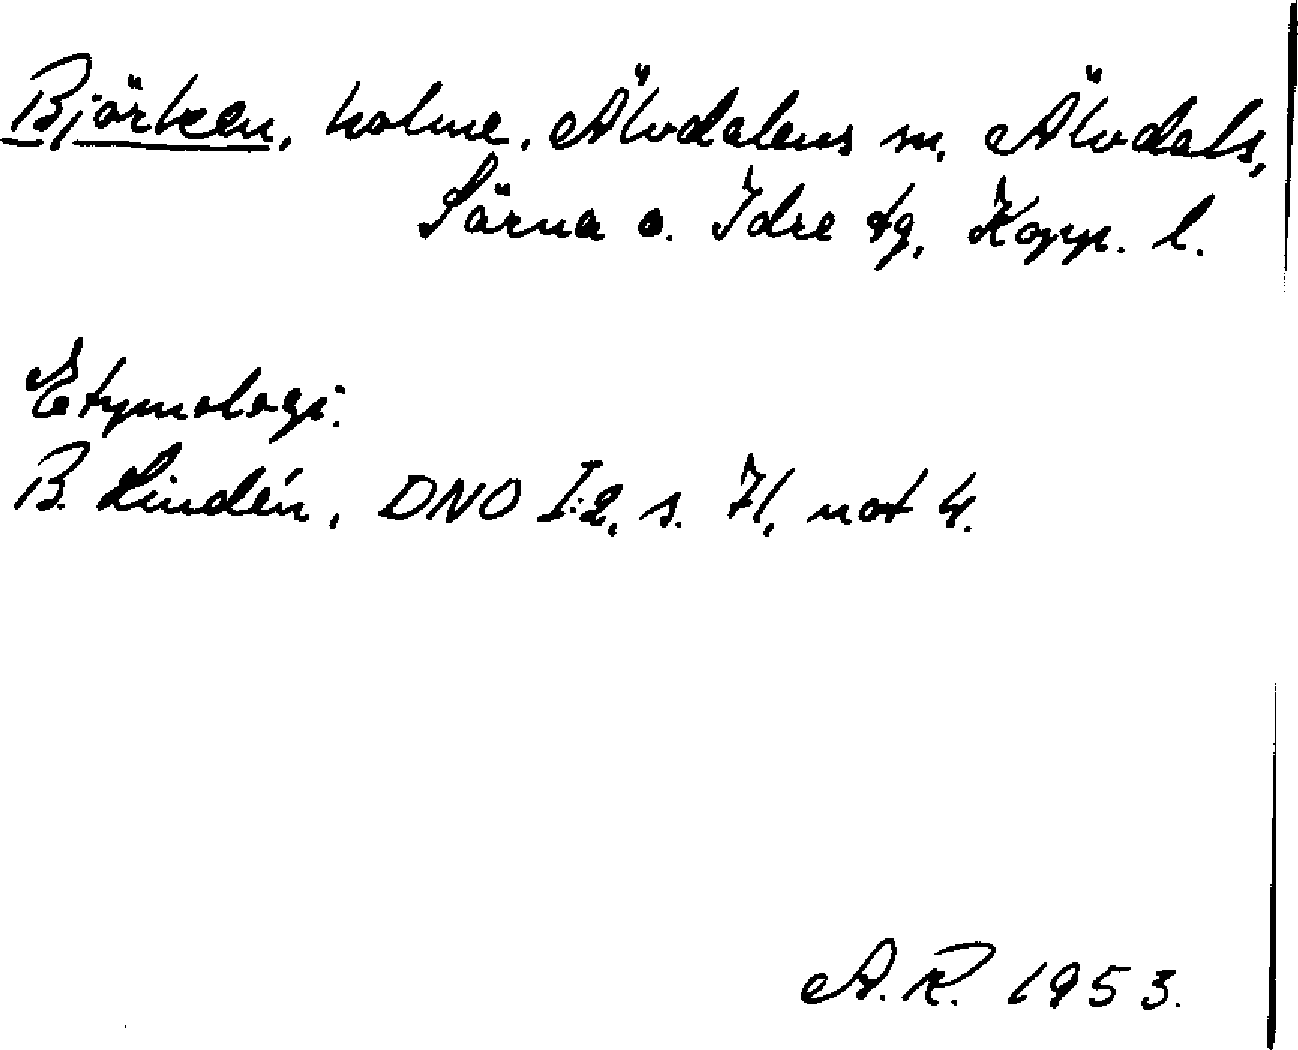 Björken, holme, Älvdalens sn, Älvdals,
Särna o. Idre tg, Kopp. l.
Etymologi:
B. Lindén, DNO I:2, s. 71, not 4.
A.R. 1953.